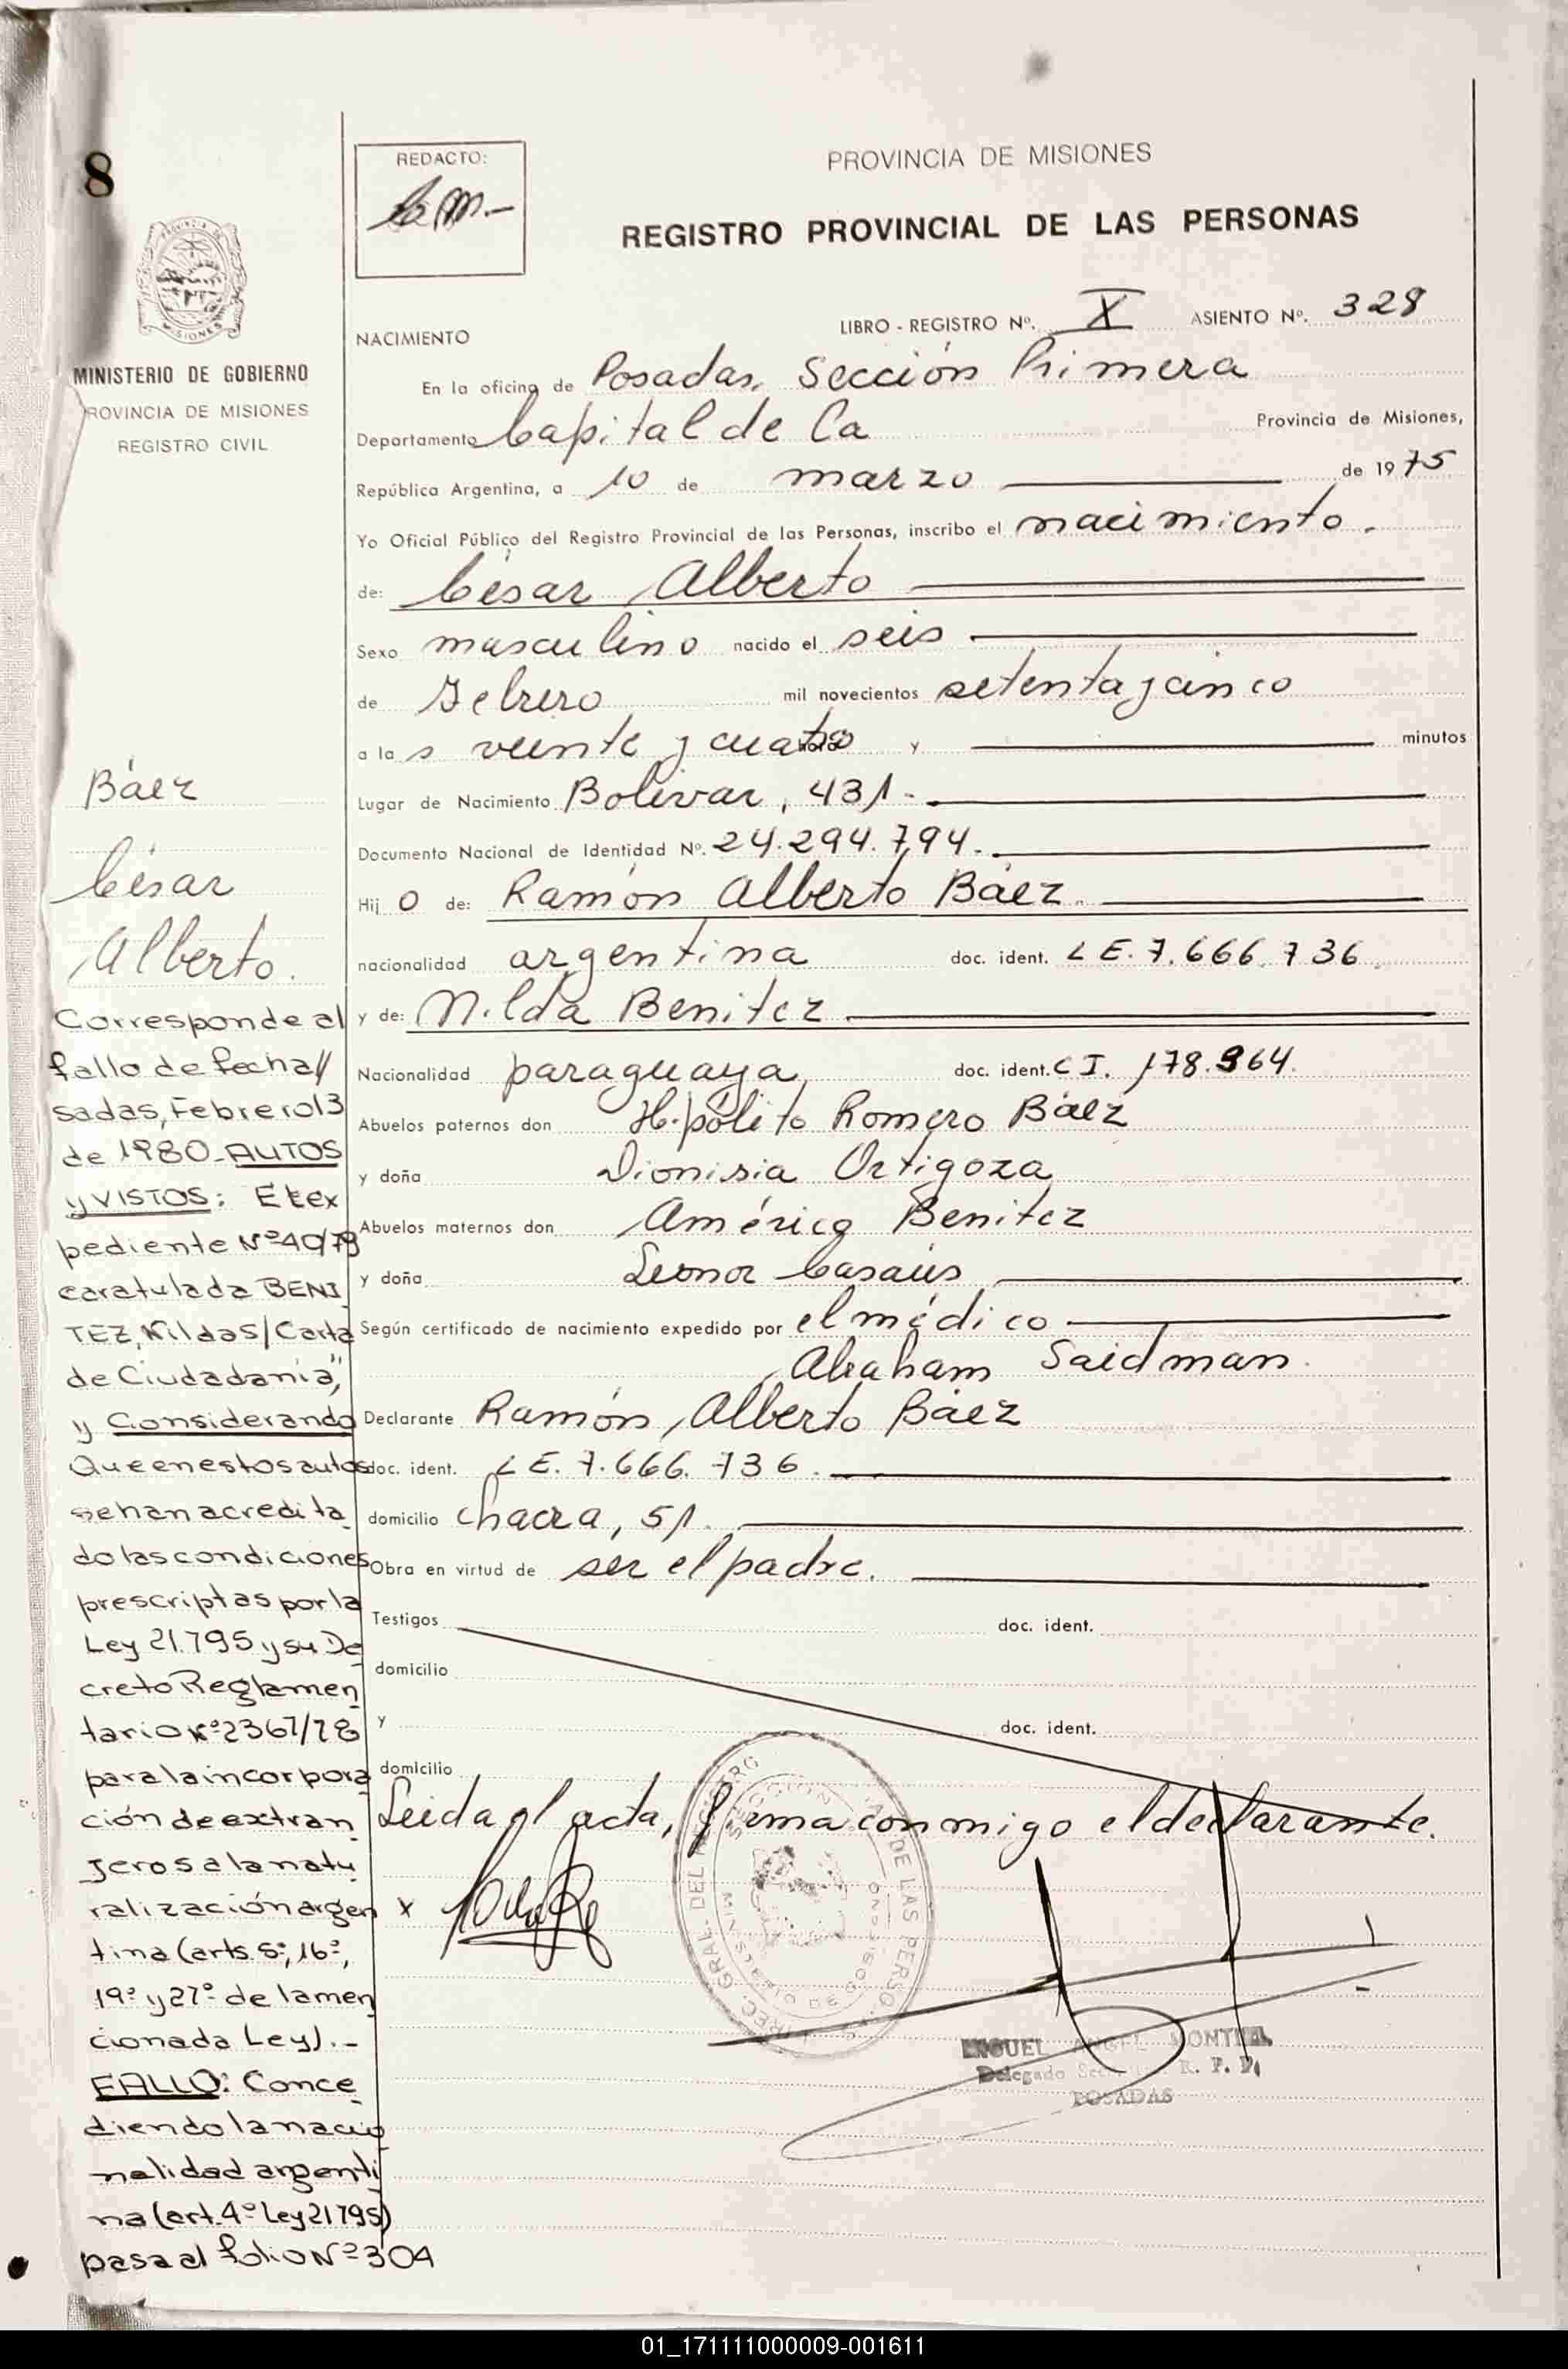 8
REDACTO:
PROVINCIA DE MISIONES
REGISTRO PROVINCIAL DE LAS PERSONAS
LIBRO - REGISTRO Nº. X ASIENTO Nº. 328
NACIMIENTO
En la oficina de Posadas, Sección Primera
Departamento Capital de La Provincia de Misiones,
República Argentina, a 10 de marzo de 1975
Yo Oficial Público del Registro Provincial de las Personas, inscribo el nacimiento.
de: César Alberto
Sexo masculino nacido el seis
de Febrero mil novecientos setenta y cinco
a las veinte y cuatro hora y minutos
Lugar de Nacimiento Bolívar, 431.-
Documento Nacional de Identidad Nº. 24.294.794.
Hijo de: Ramón Alberto Báez.
nacionalidad argentina doc. ident. LE. 7.666.736.
y de: Nilda Benitez
Nacionalidad paraguaya doc. ident. C I. 178.964.
Abuelos paternos don Hipólito Romero Báez
y doña Dionisia Ortigoza
Abuelos maternos don Américo Benitez
y doña Leonor Casaús
Según certificado de nacimiento expedido por el médico
Abraham Saidman.
Declarante Ramón Alberto Báez
doc. ident. LE. 7.666.736.
domicilio chacra, 51.
Obra en virtud de ser el padre.
Testigos doc. ident.
domicilio
y doc. ident.
domicilio
Leida el acta, firma conmigo el declarante.
x
MIGUEL ANGEL MONTIEL
Delegado R. P. P.
POSADAS
PROVINCIA DE
MISIONES
MINISTERIO DE GOBIERNO
PROVINCIA DE MISIONES
REGISTRO CIVIL
Báez
César
Alberto.
Corresponde al
fallo de fecha//
sadas, Febrero 13
de 1980_AUTOS
y VISTOS: Et ex
pediente Nº 40/79
caratulada BENI
TEZ, Nilda S/Carta
de Ciudadanía",
y Considerando
Que en estos autos
se han acredita
do las condiciones
prescriptas por la
Ley 21.795 y su De
creto Reglamen
tario Nº 2367/78
para la incorpora
ción de extran
jeros a la natu
ralización argen
tina (arts. 5º, 16º,
19º y 27º de la men
cionada Ley).-
FALLO: Conce
diendo la nacio
nalidad argenti
na (art. 4º Ley 21795)
pasa al folio Nº 304
01_171111000009-001611